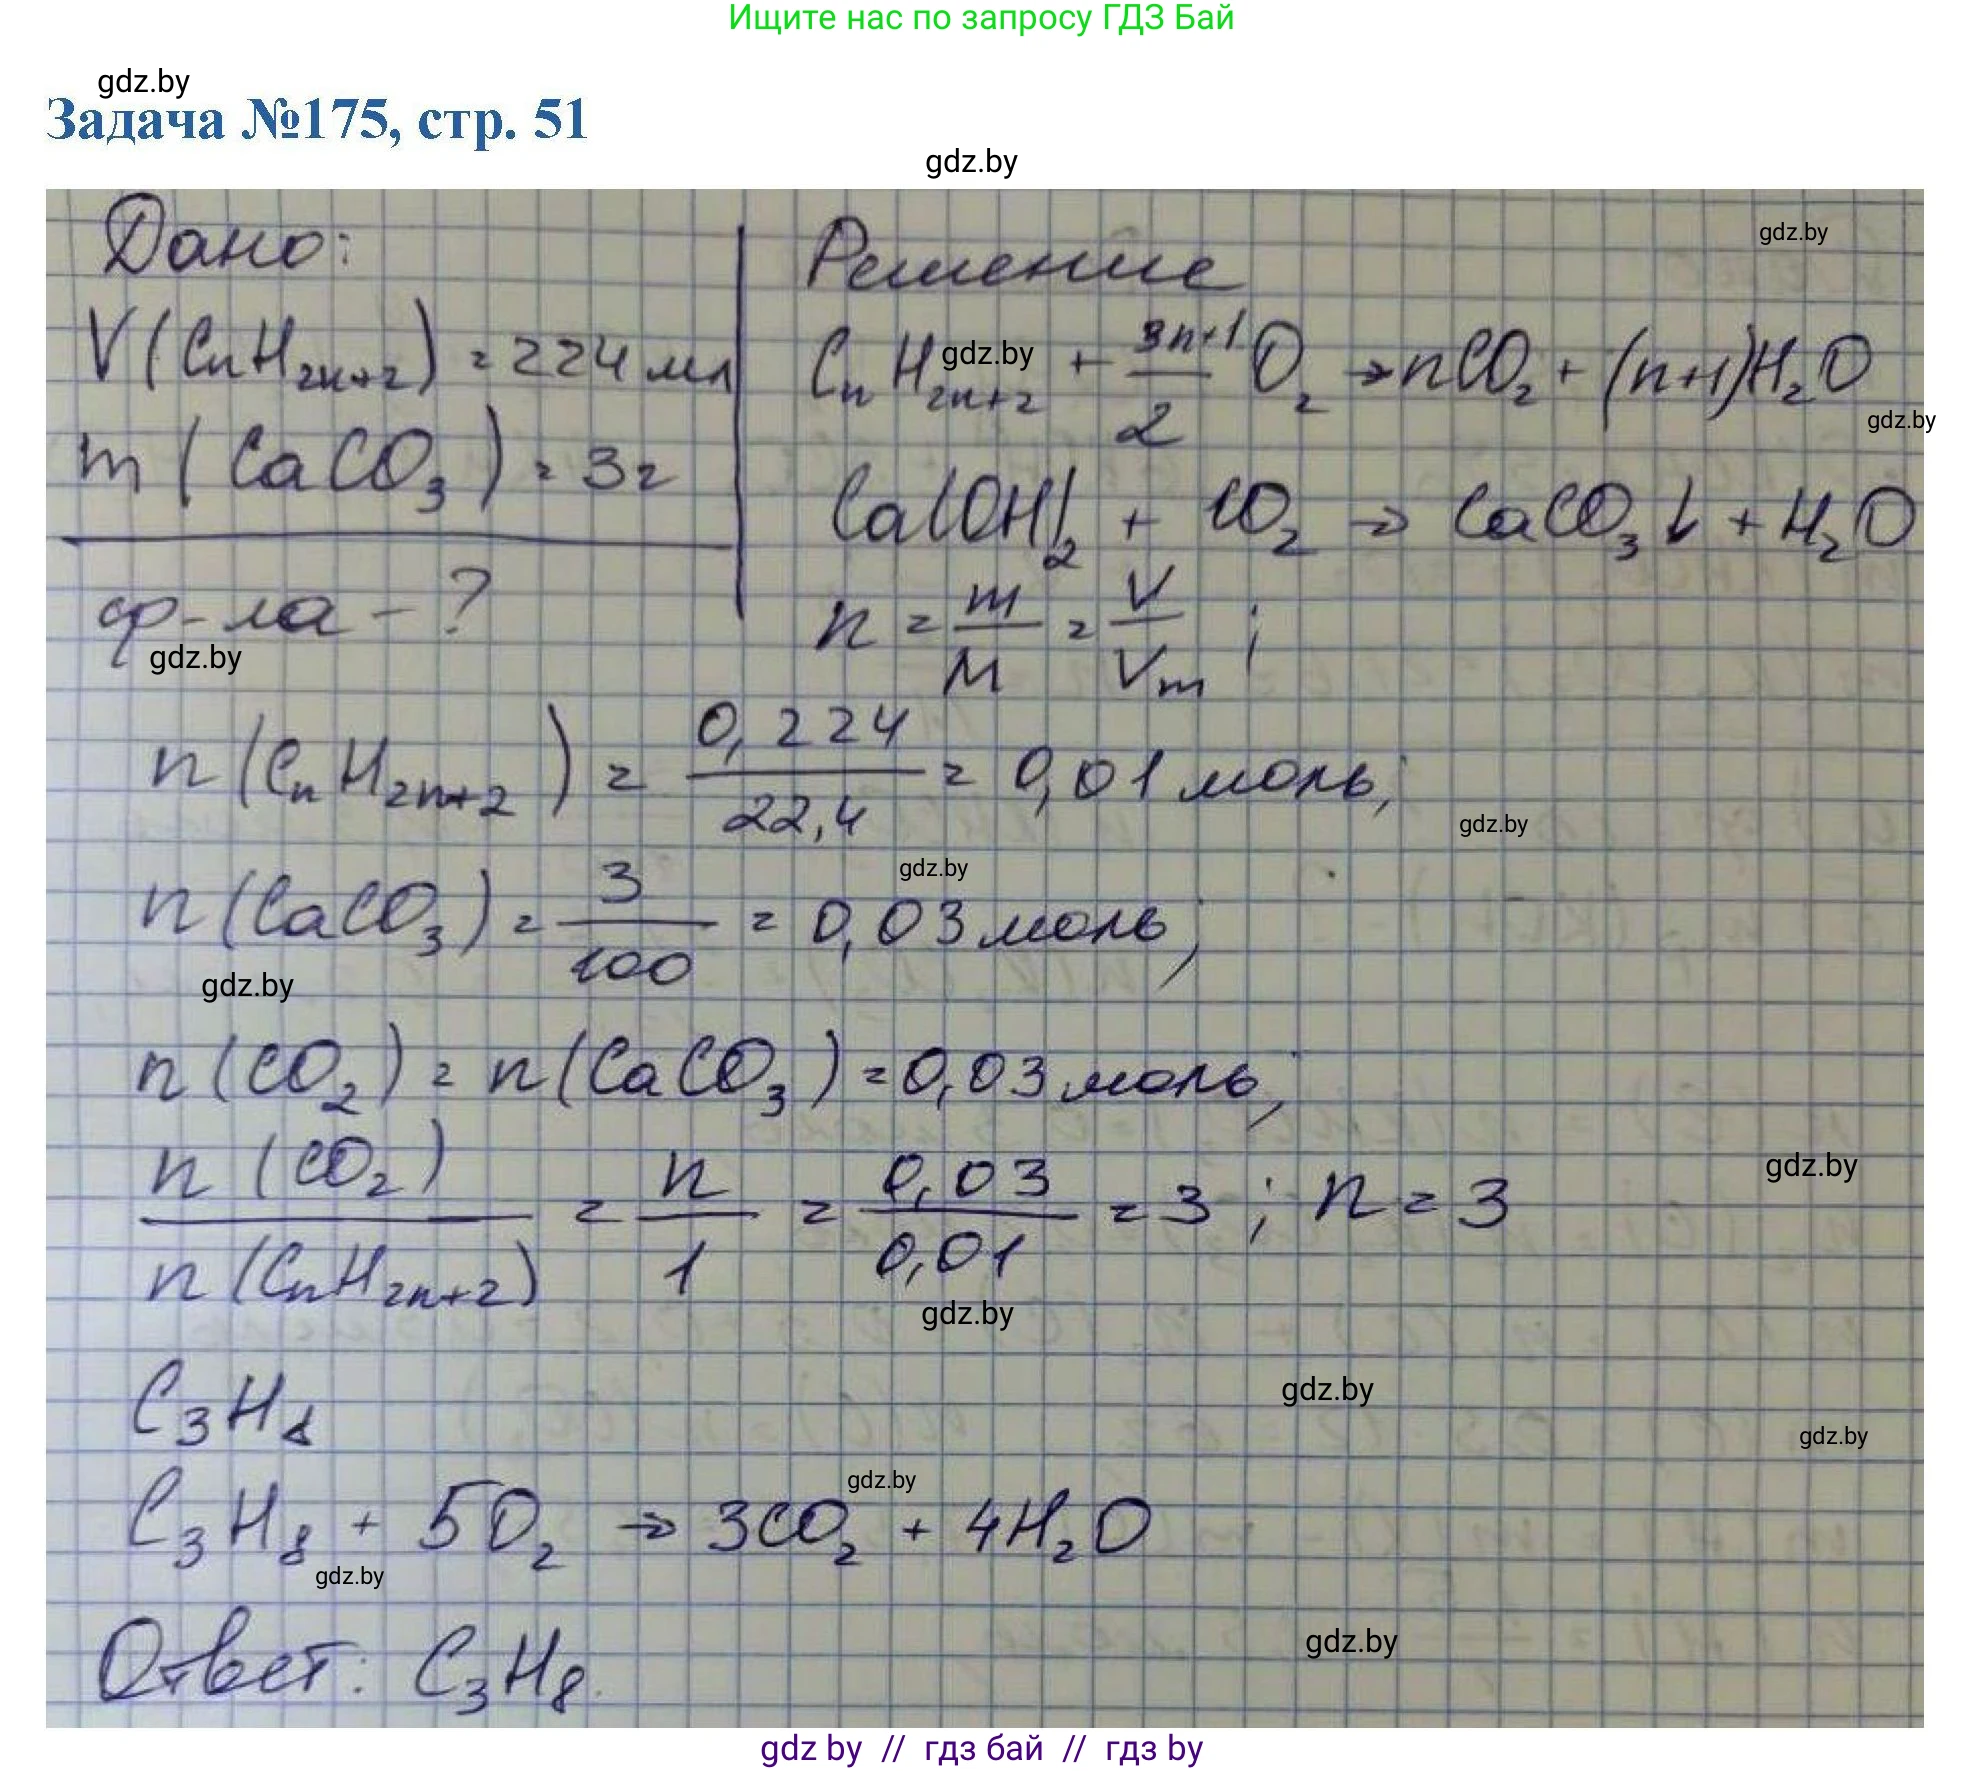 Ищите нас по запросу ГДЗ Бай
gdz.by
Задача №175, стр. 51
gdz.by
Дано:
Решение
gdz.by
V(CnH2n+2) = 224 мл
CnH2n+2 + 3n+1/2 O2 → nCO2 + (n+1)H2O
gdz.by
gdz.by
m(CaCO3) = 3г
Ca(OH)2 + CO2 → CaCO3↓ + H2O
ф-ла - ?
n = m/M = V/Vm ;
gdz.by
n(CnH2n+2) = 0,224/22,4 = 0,01 моль;
gdz.by
gdz.by
n(CaCO3) = 3/100 = 0,03 моль;
gdz.by
n(CO2) = n(CaCO3) = 0,03 моль;
n(CO2)/n(CnH2n+2) = n/1 = 0,03/0,01 = 3 ; n = 3
gdz.by
gdz.by
gdz.by
C3H8
gdz.by
gdz.by
C3H8 + 5O2 → 3CO2 + 4H2O
gdz.by
gdz.by
Ответ: C3H8.
gdz by // гдз бай // гдз by